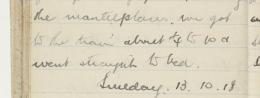 the mantelplaces. we got
to the train about ¼ to 10 a
went straight to bed.
Sunday. 13. 10. 18